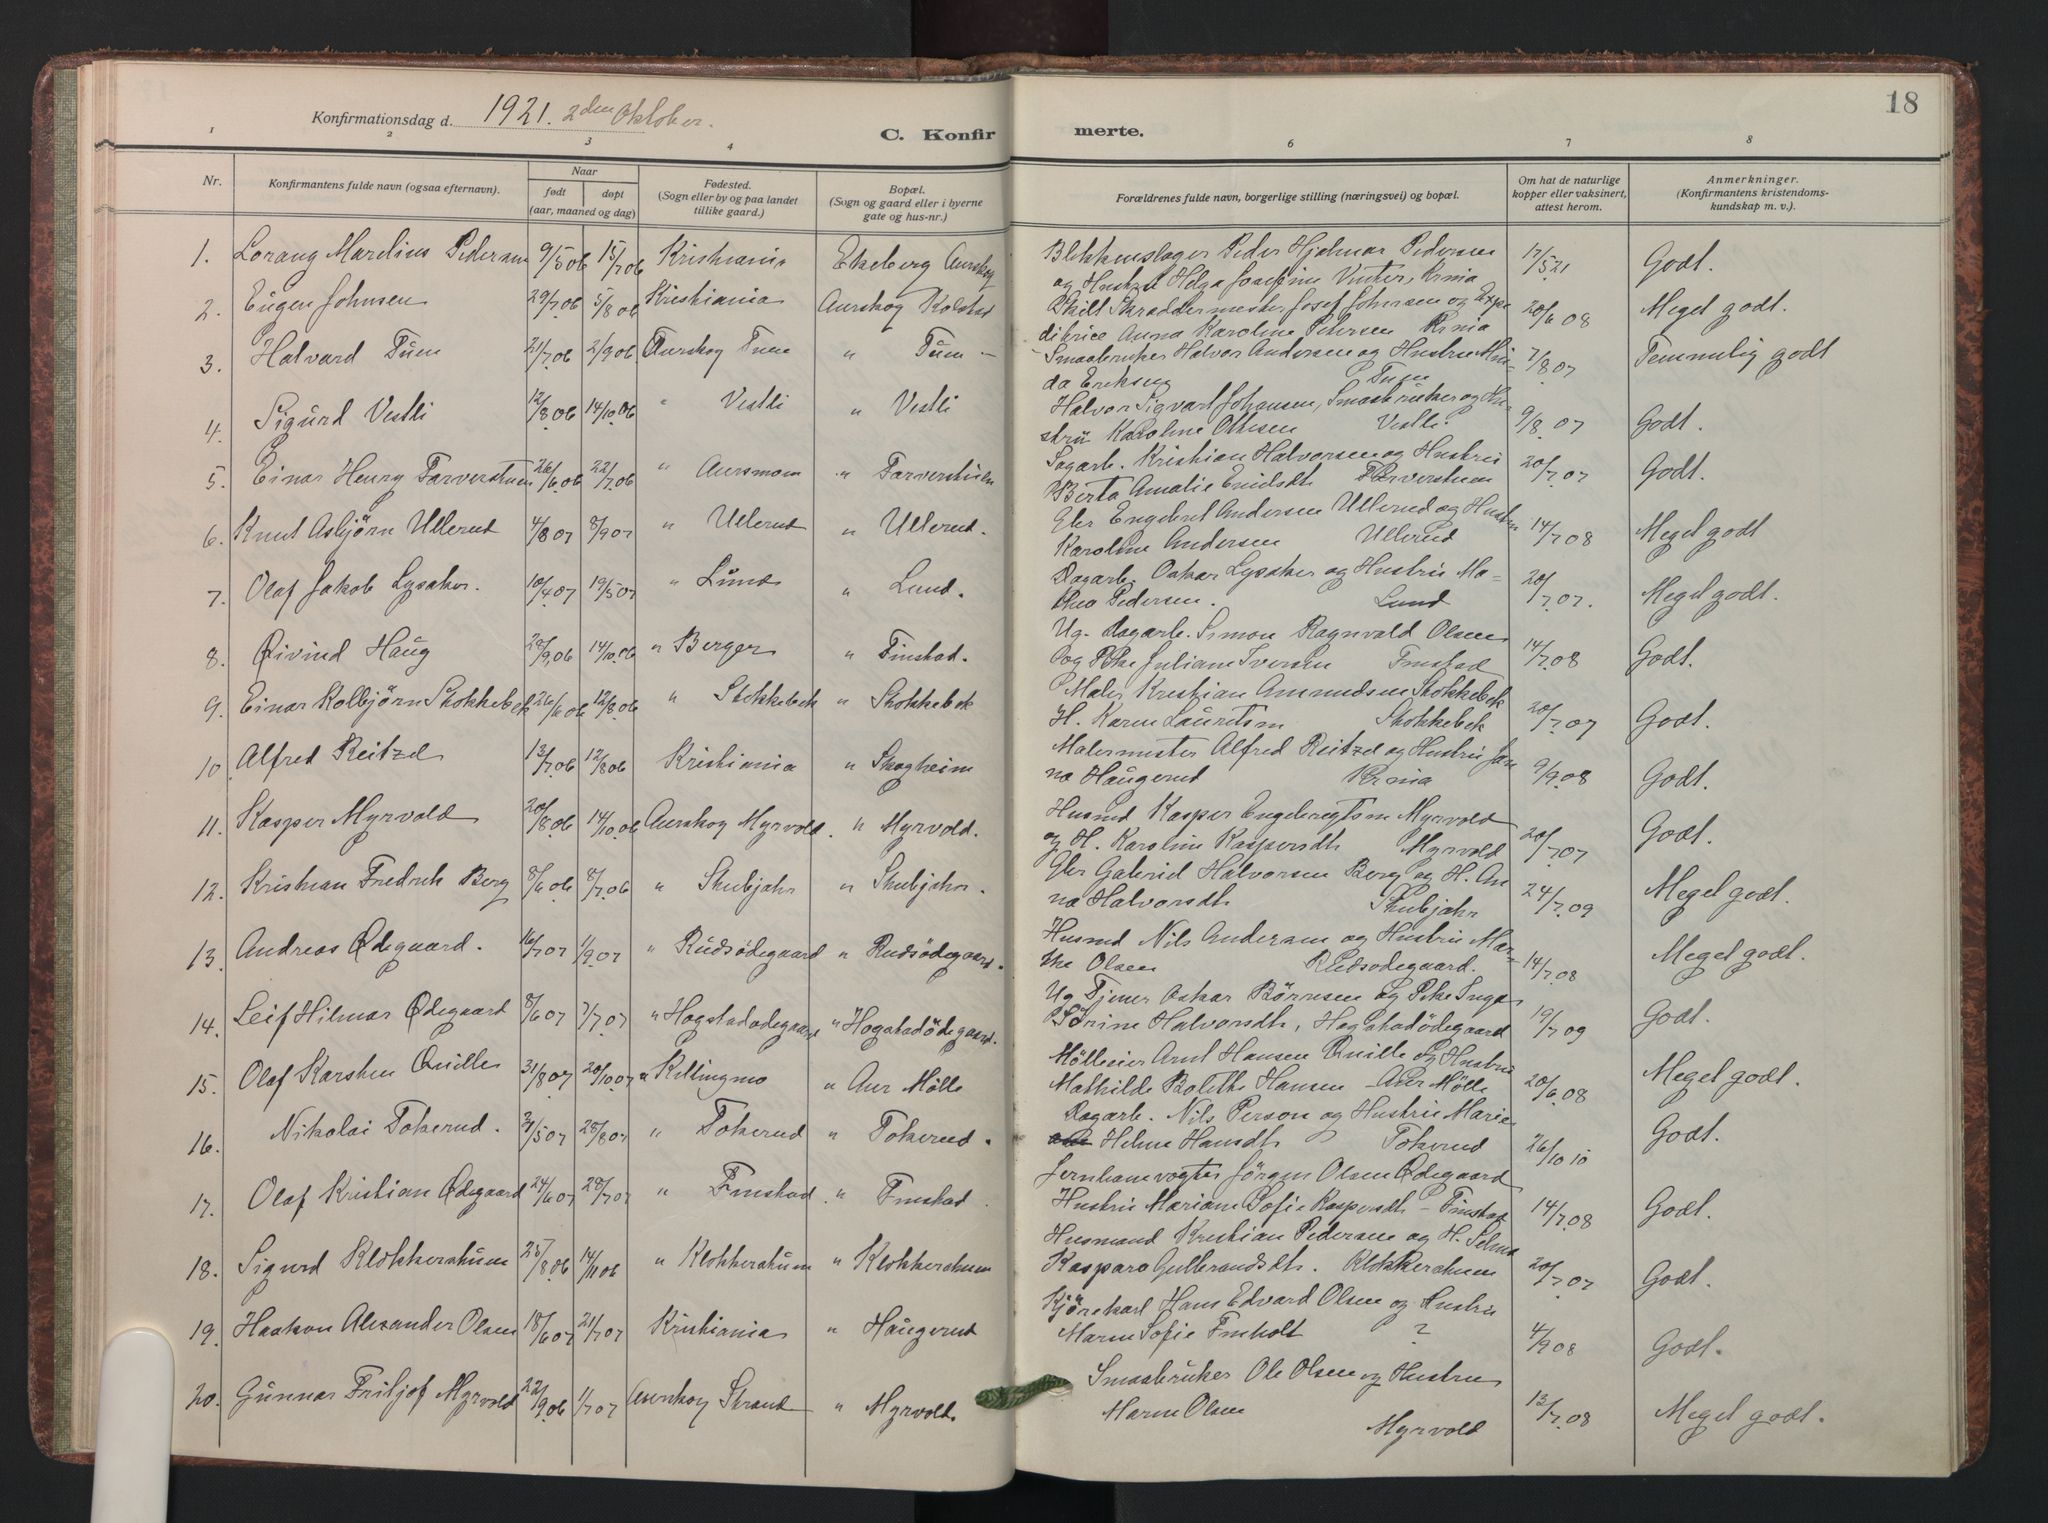 18
Konfirmationsdag d. 1921. 2den Oktober.
C. Konfirmerte.
1 2 3 4 6 7 8
Nr.
Konfirmantens fulde navn (ogsaa efternavn).
Naar
født døpt
(aar, maaned og dag)
Fødested.
(Sogn eller by og paa landet
tillike gaard.)
Bopæl.
(Sogn og gaard eller i byerne
gate og hus-nr.)
Forældrenes fulde navn, borgerlige stilling (næringsvei) og bopæl.
Om hat de naturlige
kopper eller vaksinert,
attest herom.
Anmerkninger.
(Konfirmantens kristendoms-
kundskap m. v.).
1. Lorang Marelius Pedersen 9/5 06 15/7 06 Kristiania Ekeberg Aurskog
Blikkenslager Peder Hjalmar Pedersen
og Hustru Helga Josefine Vinter, Krnia 17/5 21 Godt.
2. Eugen Johnsen 29/7 06 5/8 06 Kristiania Aurskog Kolstad
Skilt Skræddermester Josef Johnsen og Expe
ditrice Anna Karoline Petersen Krnia 20/6 08 Meget godt.
3. Halvard Tům 21/7 06 2/9 06 Aurskog Tům " Tům -
Smaabruker Halvor Andersen og Hustru
da Eriksen Tům 7/8 07 Temmelig godt
4. Sigurd Vestli 12/8 06 14/10 06 " Vestli " Vestli
Halvor Sigvart Johansen, Smaabruker og Hu-
stru Karoline Olsen Vestli 9/8 07 Godt.
5. Einar Henry Tarverstuen 26/6 06 22/7 06 " Aursmoen " Tarverstuen
Sagarb. Kristian Halvorsen og Hustru
Berta Amalie Tarverstuen 20/7 07 Godt.
6. Knut Asbjörn Ullerud 4/8 07 8/9 07 " Ullerud " Ullerud.
Gbr Engebret Andersen Ullerud og Hustru
Karoline Andersen Ullerud 14/7 08 Meget godt
7. Olaf Jakob Lysaker. 10/4 07 19/5 07 " Lund " Lund.
Dagarb. Oskar Lysaker og Hustru Ma-
Pedersen. Lund 20/7 07. Meget godt.
8. Øivind Haug 28/9 06 14/10 06 " Berger " Finstad.
Ug. Dagarb. Simon Ragnvald Olsen
og Pike Juliane Iversen Finstad 14/7 08 Godt.
9. Einar Kolbjörn Stokkebek 26/6 06 12/8 06 " Stokkebek " Stokkebek
Maler Kristian Amundsen Stokkebek
H. Karen Lauritsen Stokkebek 20/7 07 Godt.
10. Alfred Reitzel 13/7 06 12/8 06 Kristiania " Skogheim
Malermester Alfred Reitzel og Hustru Jan
na Haugerud Krnia 9/9 08 Godt.
11. Kasper Myrvold 20/8 06 14/10 06 Aurskog Myrvold. " Myrvold.
Husmd Kasper Engebregtsen Myrvold
og H. Karoline Kaspersdtr Myrvold 20/7 07 Godt.
12. Kristian Fredrik Berg 8/6 06 8/7 06 " Skubjahr " Skubjahr.
Gbr Gabriel Halvorsen Berg og H. An
na Halvorsdtr Skubjahr 24/7 09 Meget godt.
13. Andreas Ødegaard. 16/7 07 1/9 07 " Rudsödegaard " Rudsödegaard.
Husmd Nils Andersen og Hustru Mar-
the Olsen Rudsödegaard. 14/7 08 Meget godt.
14. Leif Hilmar Ødegaard 8/6 07 7/7 07 " Hogstadödegaard " Hogstadödegaard.
Ug. Tjener Oskar Börresen og Pike Inga
Sörine Halvorsdtr, Hogstadödegaard 19/7 09 Godt.
15. Olaf Karsten Quille 31/8 07 20/10 07 " Killingmo " Aur Mölle
Mölleeier Arnt Hansen Quille og Hustru
Mathilde Bolette Hansen - Aur Mölle 20/6 08 Meget godt.
16. Nikolai Tokerud. 31/5 07 28/8 07 " Tokerud " Tokerud.
Dagarb. Nils Person og Hustru Marie
Helene Hansdtr Tokerud 26/10 10 Godt.
17. Olaf Kristian Ødegaard 24/6 07 28/7 07 " Finstad. " Finstad.
Jernbanevogter Jörgen Olsen Ødegaard
Hustru Mariane Sofie Kaspersdtr - Finstad 14/7 08 Godt.
18. Sigurd Klokkerstuen 25/8 06 14/11 06 " Klokkerstuen " Klokkerstuen
Husmand Kristian Pedersen og H. Selma
Kaspara Gulbrandsdtr. Klokkerstuen 20/7 07 Godt.
19. Haakon Alexander Olsen 18/6 07 21/7 07 Kristiania " Haugerud
Kjörekarl Hans Edvard Olsen og Hustru
Maren Sofie Finholt ? 4/9 08 Godt.
20. Gunnar Fritjof Myrvold 22/9 06 1/7 07 Aurskog Strand " Myrvold.
Smaabruker Ole Olsen og Hustru
Maren Olsen Myrvold 13/7 08 Meget godt.